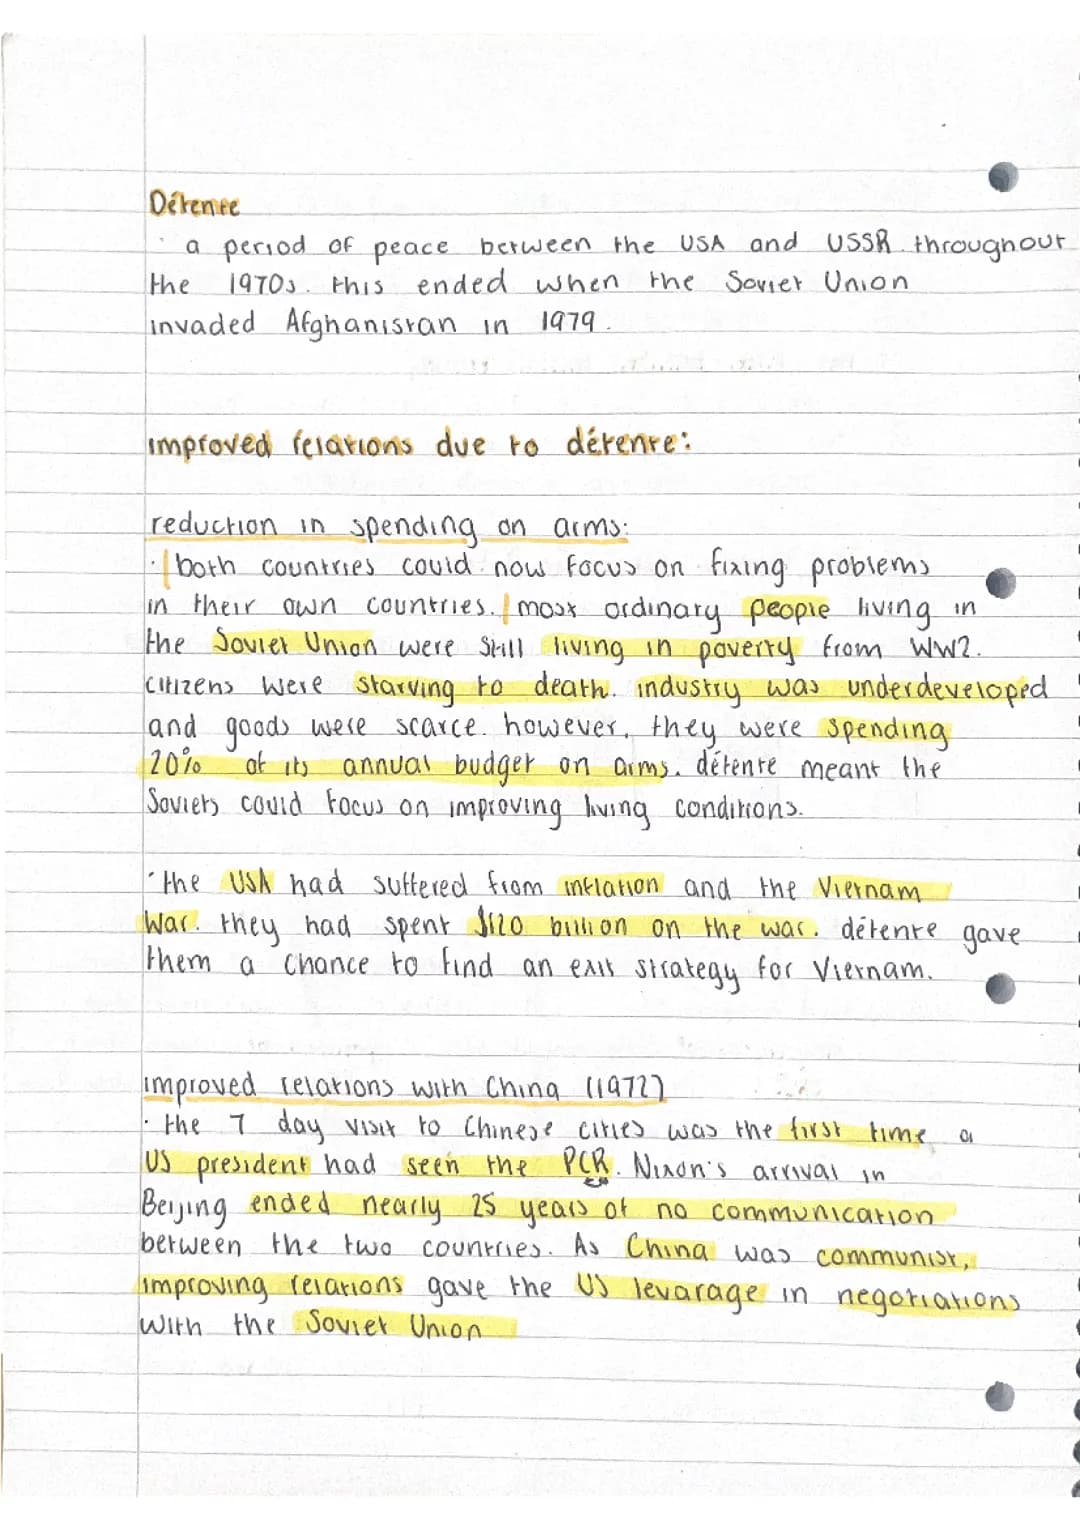 Détente
· a period of peace between the USA and USSR throughout
the 1970s. this ended when the Soviet Union
invaded Afghanistan in 1979.
improved relations due to détente:
reduction in spending on arms:
· both countries could now focus on fixing problems
in their own countries. most ordinary people living in
the Soviet Union were still living in poverty from WW2.
citizens were starving to death. industry was underdeveloped
and goods were scarce. however, they were spending
20% of its annual budget on arms. détente meant the
Soviets could focus on improving living conditions.
· the USA had suffered from inflation and the Vietnam
War. they had spent $120 billion on the war. détente gave
them a chance to find an exit strategy for Vietnam.
improved relations with China (1972)
· the 7 day visit to Chinese cities was the first time a
US president had seen the PCR. Nixon's arrival in
Beijing ended nearly 25 years of no communication
between the two countries. As China was communist,
improving relations gave the US levarage in negotiations
with the Soviet Union